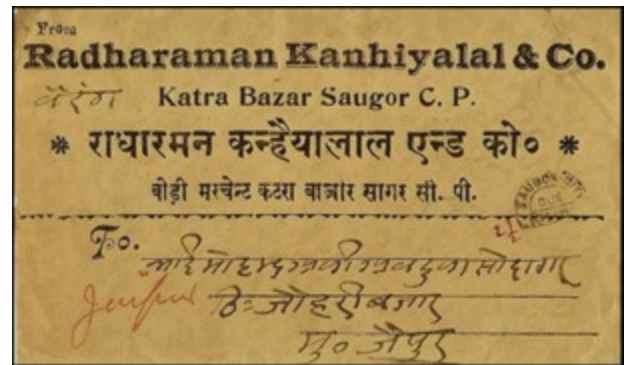 From
Radharaman Kanhiyalal & Co.
बैरंग
Katra Bazar Saugor C. P.
* राधारमन कन्हैयालाल एन्ड को० *
बीड़ी मरचेन्ट कटरा बाज़ार सागर सी. पी.
SAUGOR
DUE
To.
भाई
Jaipur
ठिः जौहरी बजार
मु० जैपुर